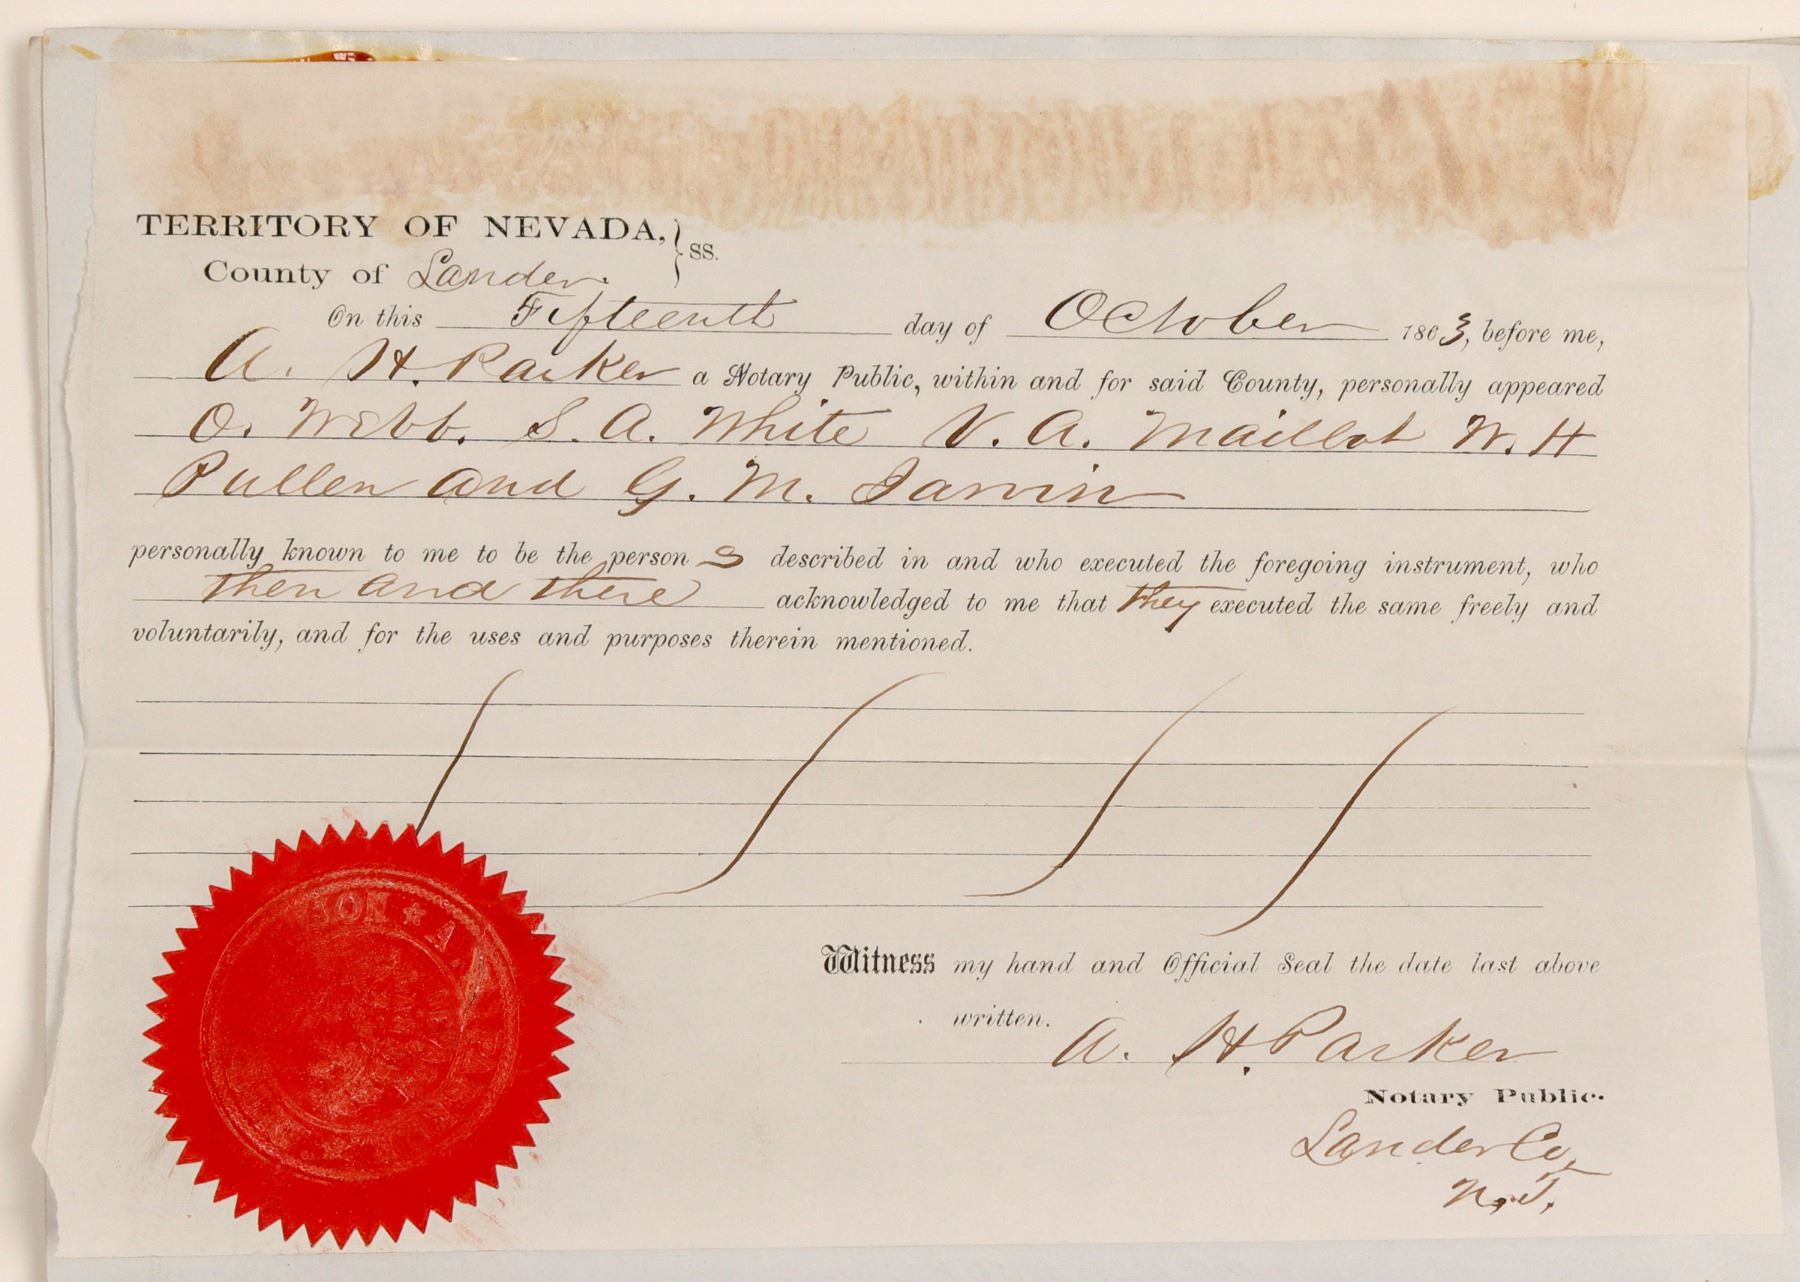 TERRITORY OF NEVADA, } SS.
County of Lander.
On this Fifteenth day of October 1863, before me,
A. H. Parker a Notary Public, within and for said County, personally appeared
O. Webb. S. A. White V. A. Maillot W. H
Pullen and G. M. Jarvin
personally known to me to be the person s described in and who executed the foregoing instrument, who
then and there acknowledged to me that they executed the same freely and
voluntarily, and for the uses and purposes therein mentioned.
Witness my hand and Official Seal the date last above
written.
A. H. Parker
Notary Public.
Lander Co,
N. T.